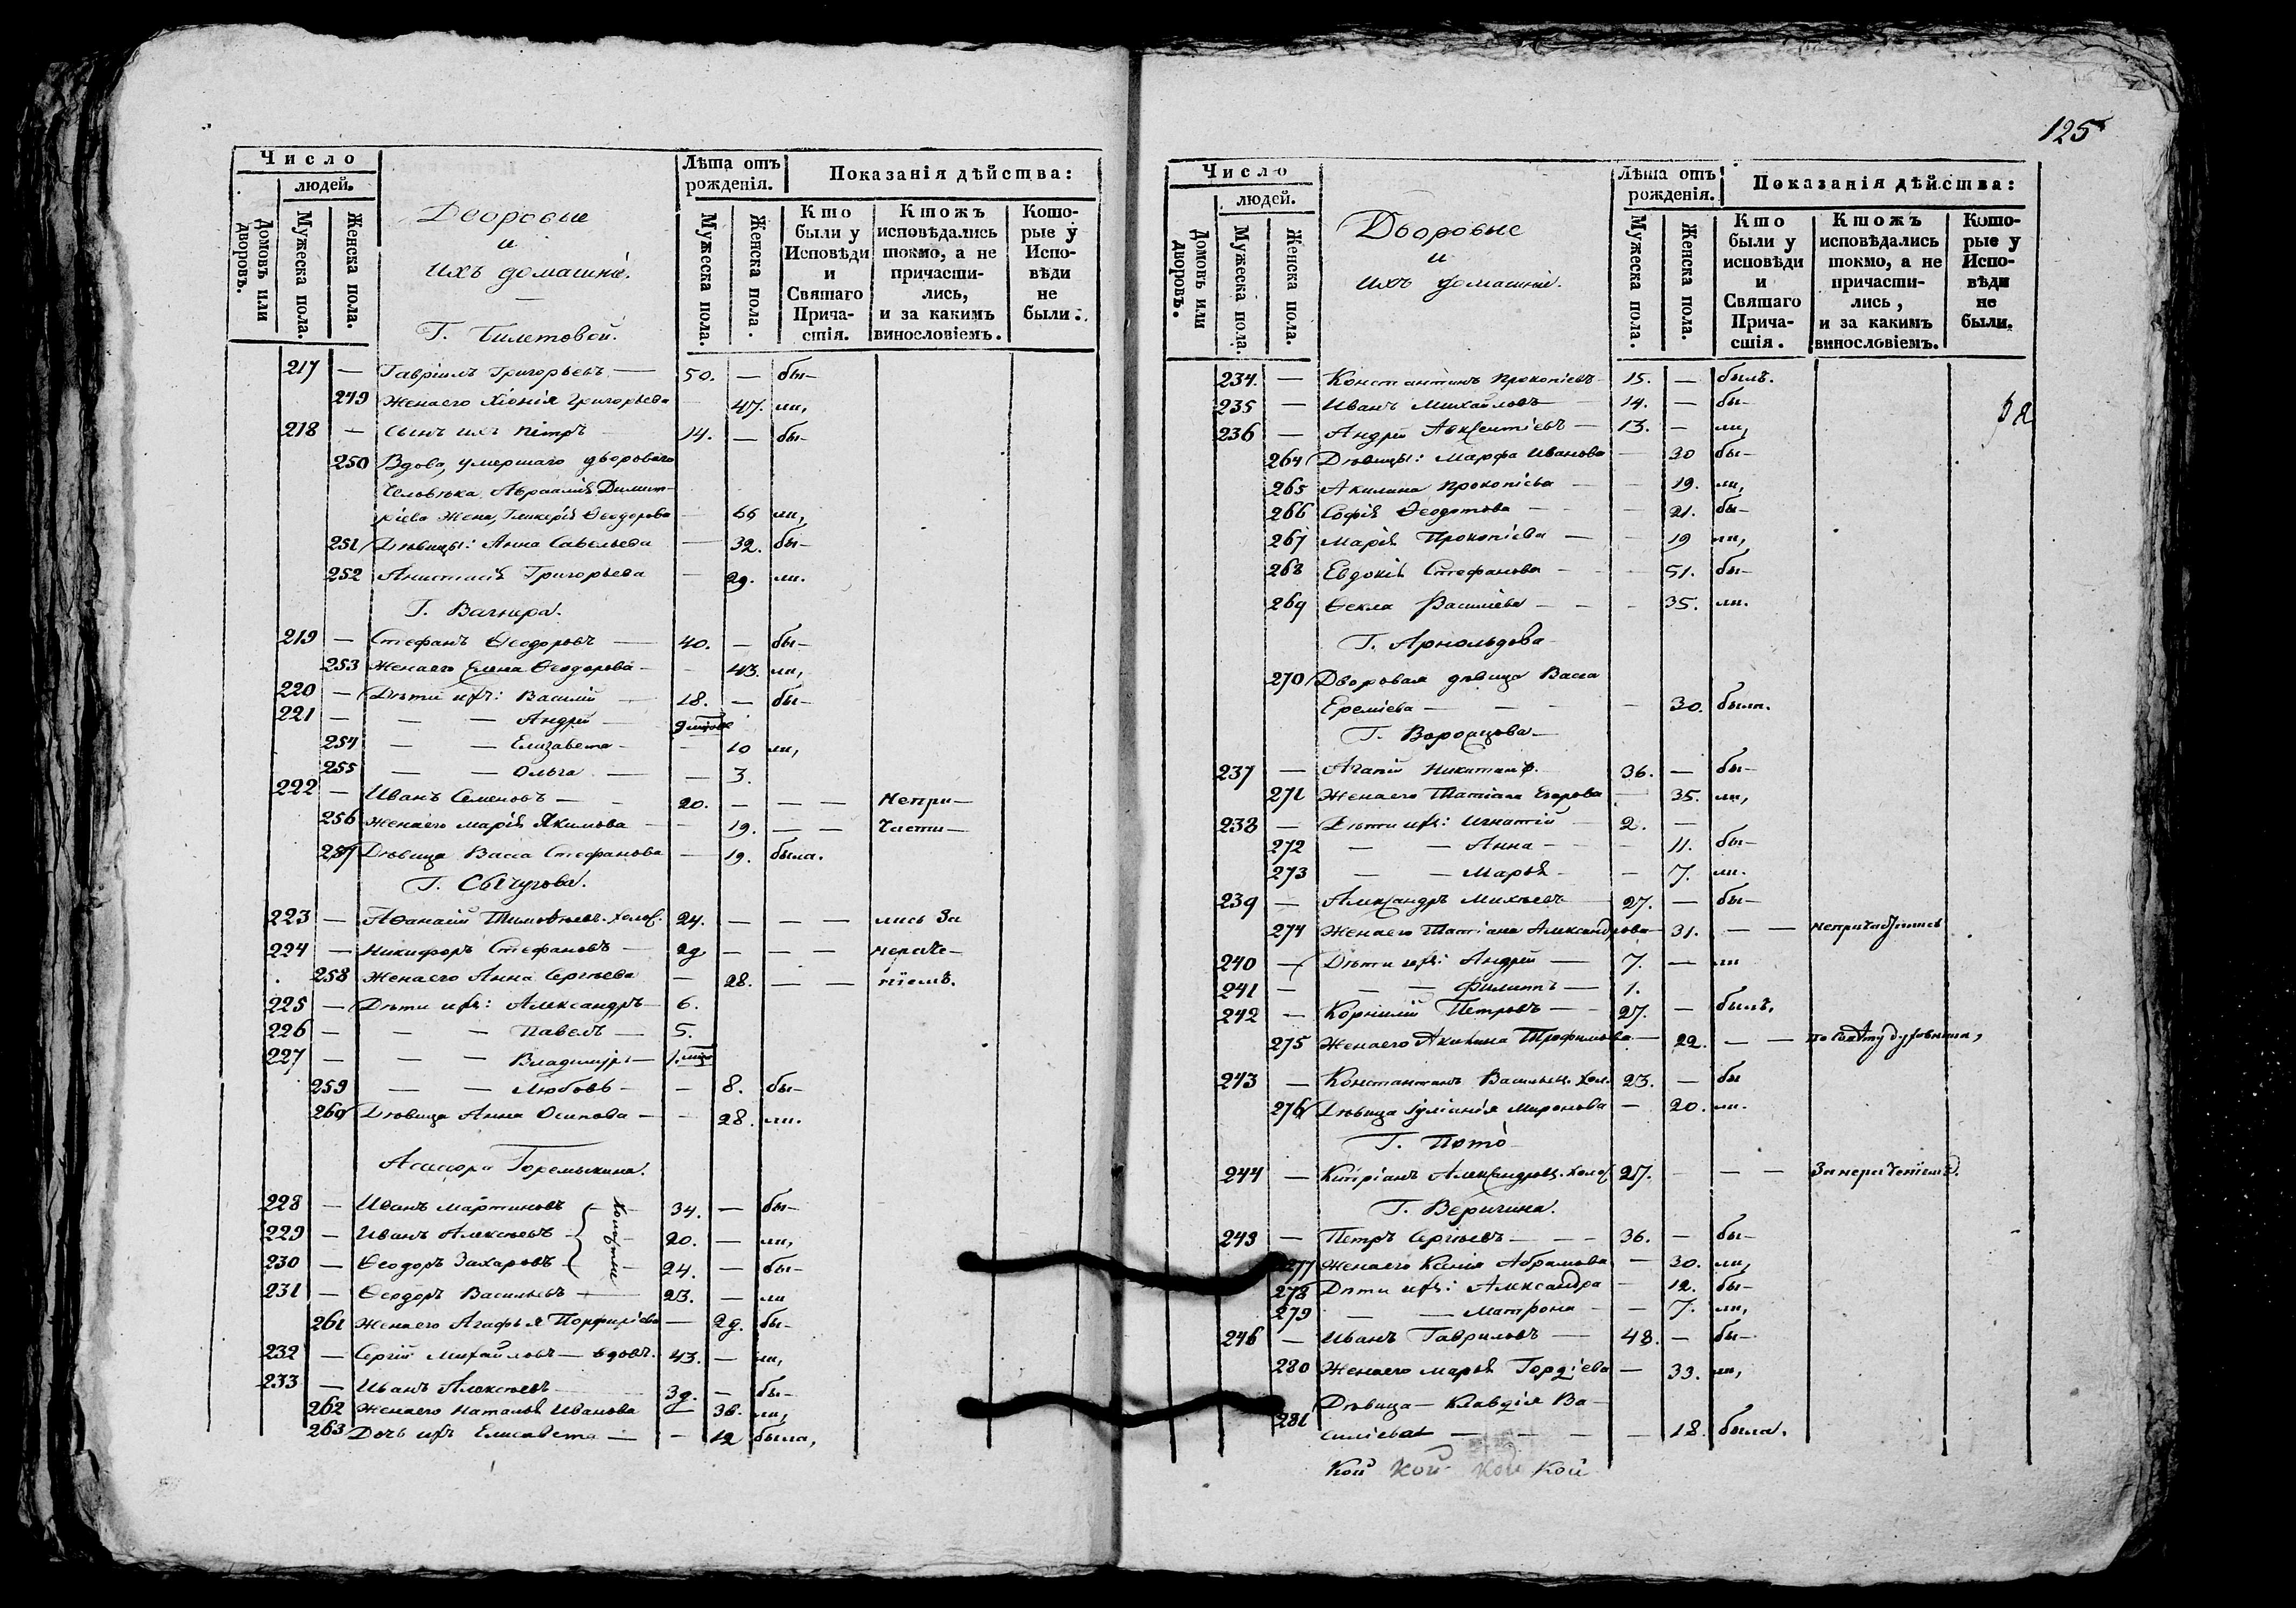 Число
людей.
Домовъ или дворовъ.
Мужеска пола.
Женска пола.
Дворовые
и
ихъ домашніе.
Лѣта отъ рожденія.
Мужеска пола.
Женска пола.
Показанія дѣйства:
Кто были у Исповѣди и Святаго Причастія.
Ктожъ исповѣдались токмо, а не причастились, и за какимъ винословіемъ.
Которые у Исповѣди не были.
Г. Билетовой.
217 — Гавріилъ Григорьевъ — 50. — бы-
249 Жена его Хіонія Григорьева 47. ли,
218 — Сынъ ихъ Петръ 14. — бы-
250 Вдова, умершаго двороваго
человѣка Авраамія Димит-
ріева жена, Гликерія Ѳеодорова 66 ли,
251 Дѣвицы: Анна Савельева — 32. бы-
252 Анастасія Григорьева — 29. ли.
Г. Вагнера.
219 — Стефанъ Ѳеодоровъ — 40. — бы-
253 Жена его Елена Ѳеодорова — 43. ли,
220 — Дѣти ихъ: Василій 18. — бы-
221 — — — Андрей
254 — — Елизавета — 10 ли,
255 — — Ольга — — 3.
222 — Иванъ Семеновъ — 20. — — — Непри-
256 Жена его Марія Якимова — 19. — — части-
257 Дѣвица Васса Стефанова — 19. была.
Г. Сычугова.
223 — Аѳанасій Тимоѳеевъ. холос. 24. — — — лись за
224 — Никифоръ Стефановъ — 29 — — — нераче-
258 Жена его Анна Сергѣева — 28. — — ніемъ.
225 — Дѣти ихъ: Александръ — 6.
226 — — — Павелъ — 5.
227 — — — Владимиръ —
259 — — Любовь — — 8. бы-
260 Дѣвица Анна Осипова — 28. ли.
Асессора Горемыкина.
228 — Иванъ Мартиновъ — 34. — бы-
229 — Иванъ Алексѣевъ — 20. — ли,
230 — Ѳеодоръ Захаровъ 24. — бы-
холостые
231 — Ѳеодоръ Васильевъ — 23. — ли
261 Жена его Агафья Порфирьева — 29. бы-
232 — Сергій Михайловъ — вдовъ. 43. — ли,
233 — Иванъ Алексѣевъ 39. — бы-
262 Жена его Наталья Иванова — 36. ли,
263 Дочь ихъ Елисавета — — 12 была,
125
Число
людей.
Домовъ или дворовъ.
Мужеска пола.
Женска пола.
Дворовые
и
ихъ домашніе.
Лѣта отъ рожденія.
Мужеска пола.
Женска пола.
Показанія дѣйства:
Кто были у исповѣди и Святаго Причастія.
Ктожъ исповѣдались токмо, а не причастились, и за какимъ винословіемъ.
Которые у Исповѣди не были.
234. — Константинъ Прокопіевъ 15. — былъ.
235 — Иванъ Михайловъ — 14. — бы-
236 — Андрей Авксентіевъ — 13. — ли,
264 Дѣвицы: Марфа Иванова — 30 бы-
265 Акилина Прокопіева — — 19. ли,
266 Софія Ѳеодотова — — 21. бы-
267 Марія Прокопіева — — 19 ли,
268 Евдокія Стефанова — — 51. бы-
269 Ѳекла Василіева — — 35. ли.
Г. Арнольдова
270 Дворовая дѣвица Васса
Еремѣева — — — 30. была.
Г. Воронцова —
237 — Агапій Никитинъ. 36. — бы-
271 Жена его Татіана Егорова — 35. ли,
238 — Дѣти ихъ: Игнатій 2. —
272 — — Анна — — 11. бы-
273 — — Марья — — 7. ли.
239 — Александръ Михѣевъ 27. — бы-
274 Жена его Татіана Александрова — 31. — — непричастилась
240 — Дѣти ихъ: Андрей — 7. — ли
241 — — — Филиппъ — 1.
242 — Корнилій Петровъ — 27. — былъ.
275 Жена его Акилина Трофимова — 22. — — по совѣту духовника,
243 — Константинъ Васильев. хол. 23. — бы
276 Дѣвица Іуліанія Миронова — 20. ли.
Г. Пото
244 — Кипріанъ Александров. холос. 27. — — — За нераченіемъ.
Г. Веригина.
245 — Петръ Сергѣевъ — 36. — бы-
277 Жена его Ксенія Абрамова — 30. ли,
278 Дѣти ихъ: Александра — 12. бы-
279 — — Матрона — — 7. ли,
246 — Иванъ Гавриловъ — 48. — бы-
280 Жена его Марья Гордіева — 33. ли,
281 Дѣвица — Клавдія Ва-
силіева — — — 18. была.
Кой Кой Кой Кой